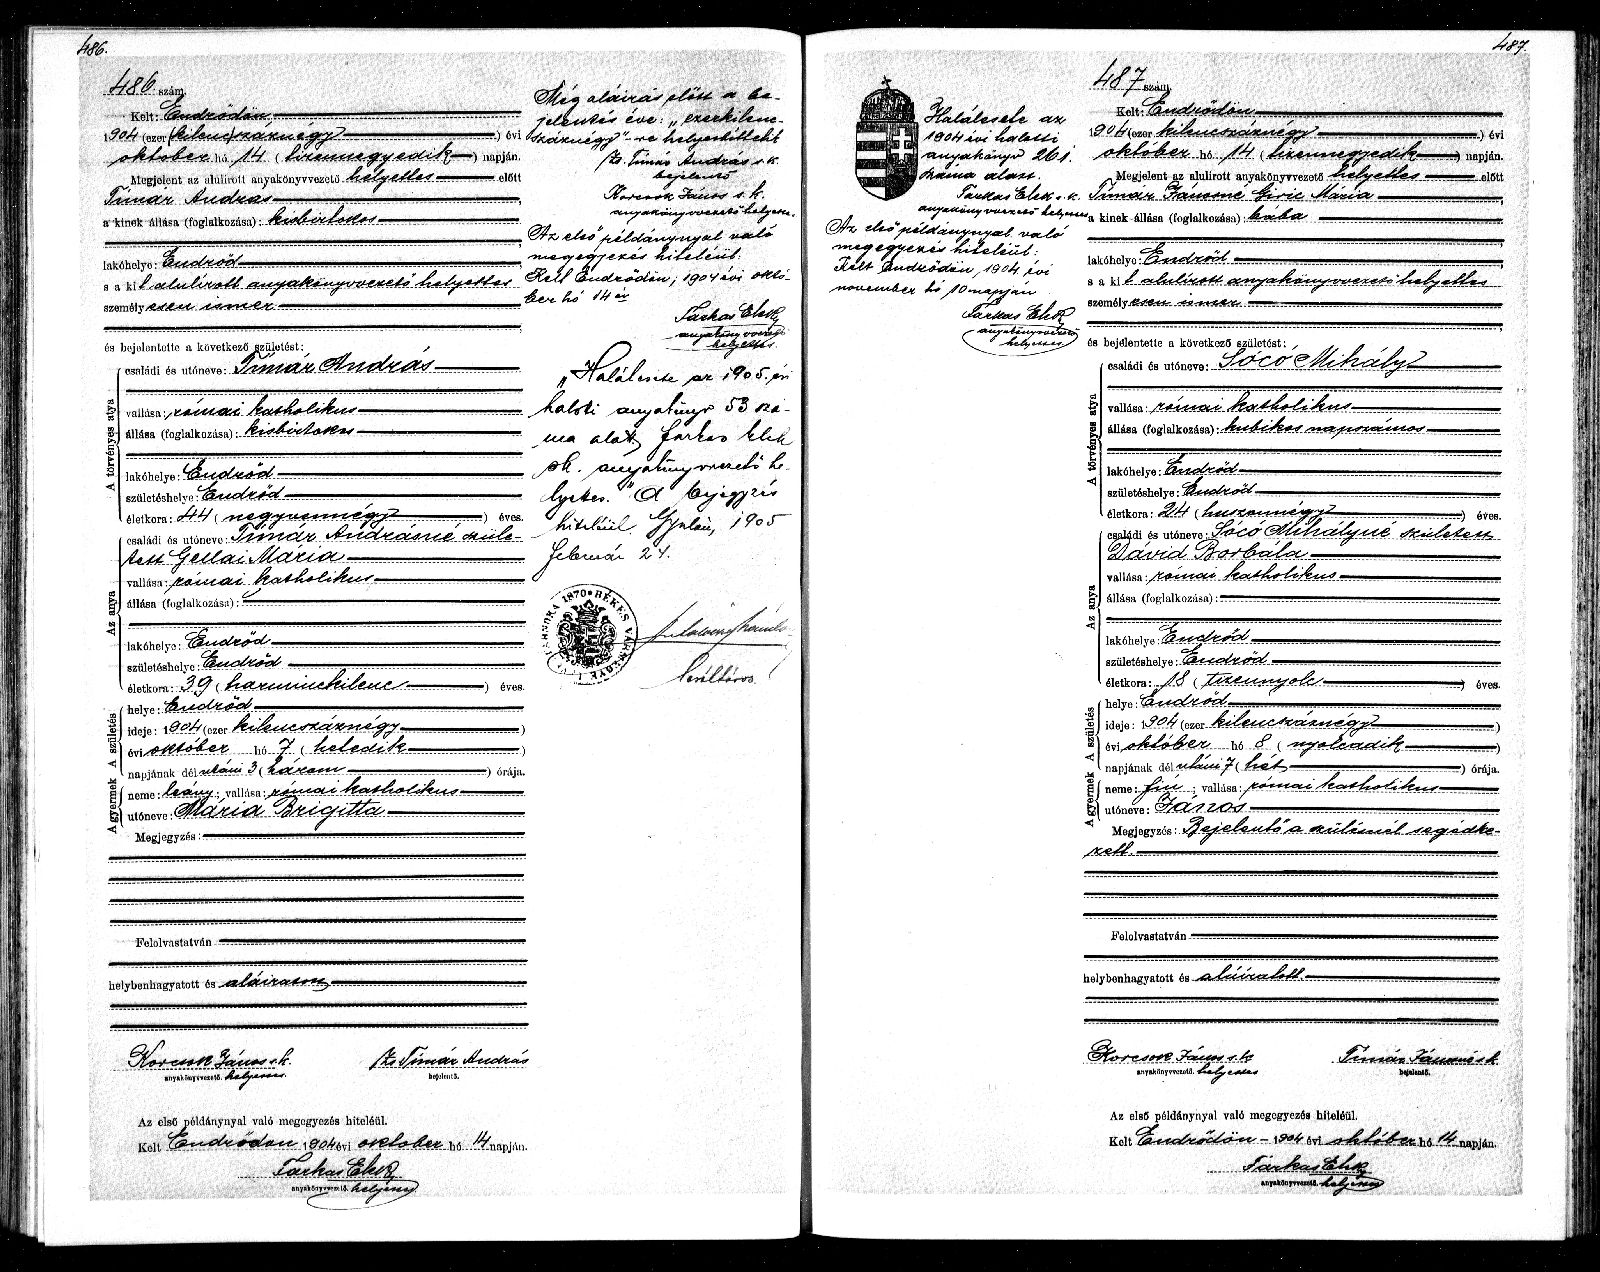 486.
486 szám.
Kelt: Endrődön,
1904 (ezer kilencszáznégy) évi
október hó 14 (tizennegyedik) napján.
Megjelent az alulirott anyakönyvvezető helyettes előtt
Tímár András
a kinek állása (foglalkozása): kisbirtokos
lakóhelye: Endrőd
s a kit alulírott anyakönyvvezető helyettes
személyesen ismer
és bejelentette a következő születést:
A törvényes atya
családi és utóneve: Tímár András
vallása: római katholikus
állása (foglalkozása): kisbirtokos
lakóhelye: Endrőd
születéshelye: Endrőd
életkora: 44 (negyvennégy) éves.
Az anya
családi és utóneve: Tímár Andrásné szüle-
tett Gellai Mária
vallása: római katholikus
állása (foglalkozása):
lakóhelye: Endrőd
születéshelye: Endrőd
életkora: 39 (harminckilenc) éves.
A születés
helye: Endrőd
ideje: 1904 (ezer kilencszáznégy)
évi október hó 7 (hetedik)
napjának dél utáni 3 (három) órája.
A gyermek
neme: leány; vallása: római katholikus
utóneve: Mária Brigitta
Megjegyzés:
Felolvastatván
helybenhagyatott és aláiratott
Korcsok János s.k. Ifj. Tímár András
anyakönyvvezető. helyettes bejelentő.
Az első példánynyal való megegyezés hiteléül.
Kelt Endrődön 1904 évi október hó 14 napján.
Farkas Elek
anyakönyvvezető. helyettes
Még aláirás előtt a be-
jelentés éve: „ezerkilenc-
száznégy"-re helyesbittetett
Ifj. Tímár András s.k.
bejelentő
Korcsok János s.k.
anyakönyvvezető helyettes.
Az első példánynyal való
megegyezés hiteléül:
Kelt Endrődön, 1904 évi októ-
ber hó 14 én
Farkas Elek
anyakönyvvezető
helyettes.
„Halálesete az 1905. évi
halotti anyakönyv 53 szá-
ma alatt, Farkas Elek
sk. anyakönyvvezető he-
lyettes." A bejegyzés
hiteléül. Gyulán, 1905
február 24.
1870 BÉKÉS VÁRMEGYE
levéltáros.
487.
487 szám.
Kelt: Endrődön
1904 (ezer kilencszáznégy) évi
október hó 14 (tizennegyedik) napján.
Megjelent az alulirott anyakönyvvezető helyettes előtt
Tímár Jánosné Giric Mária
a kinek állása (foglalkozása): bába
lakóhelye: Endrőd
s a kit alulírott anyakönyvvezető helyettes
személyesen ismer
és bejelentette a következő születést:
A törvényes atya
családi és utóneve: Sóczó Mihály
vallása: római katholikus
állása (foglalkozása): kubikos napszámos
lakóhelye: Endrőd
születéshelye: Endrőd
életkora: 24 (huszonnégy) éves.
Az anya
családi és utóneve: Sóczó Mihályné született
Dávid Borbála
vallása: római katholikus
állása (foglalkozása):
lakóhelye: Endrőd
születéshelye: Endrőd
életkora: 18 (tizennyolc) éves.
A születés
helye: Endrőd
ideje: 1904 (ezer kilencszáznégy)
évi október hó 8 (nyolcadik)
napjának dél utáni 7 (hét) órája.
A gyermek
neme: fiú; vallása: római katholikus
utóneve: János
Megjegyzés: Bejelentő a szülésnél segédke-
zett.
Felolvastatván
helybenhagyatott és aláiratott.
Korcsok János s.k. Tímár Jánosné s.k.
anyakönyvvezető. helyettes bejelentő.
Az első példánynyal való megegyezés hiteléül.
Kelt Endrődön 1904 évi október hó 14 napján.
Farkas Elek
anyakönyvvezető. helyettes
Halálesete az
1904 évi halotti
anyakönyv 261
száma alatt.
Farkas Elek s.k.
anyakönyvvezető helyettes
Az első példánynyal való
megegyezés hiteléül:
Kelt Endrődön, 1904 évi
november hó 10 napján
Farkas Elek
anyakönyvvezető
helyettes